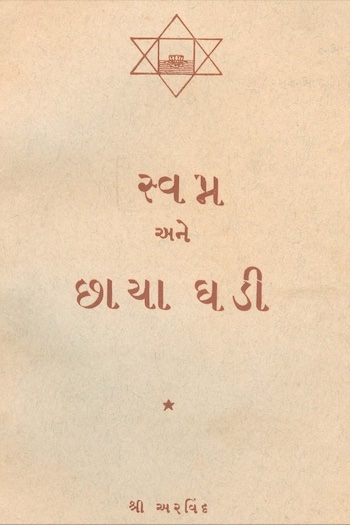 સ્વપ્ન
અને
છાયા ઘડી
શ્રી અરવિંદ